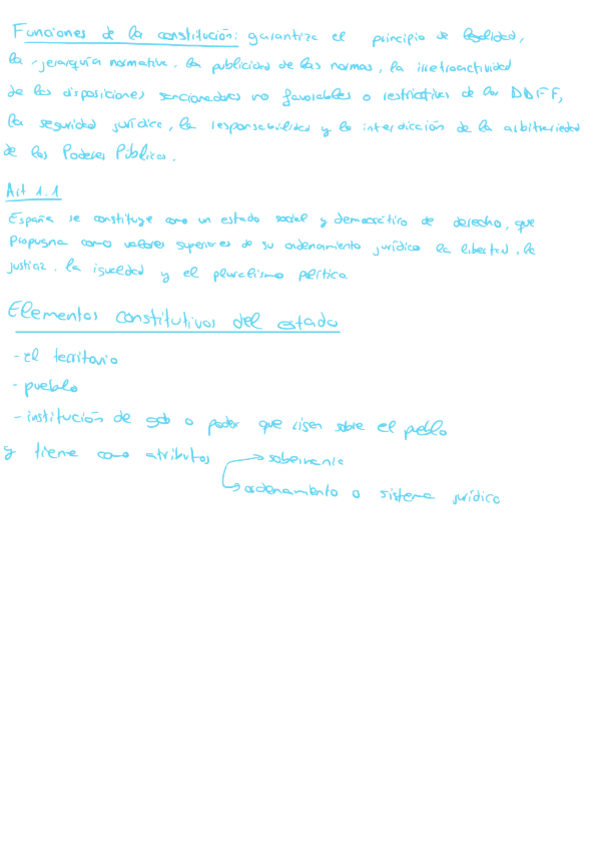 Funciones de la constitución: garantiza el principio de legalidad,
la jerarquía normativa, la publicidad de las normas, la irretroactividad
de las disposiciones sancionadoras no favorables o restrictivas de los DDFF,
la seguridad jurídica, la responsabilidad y la interdicción de la arbitrariedad
de los Poderes Públicos.
Art 1.1
España se constituye como un estado social y democrático de derecho, que
propugna como valores superiores de su ordenamiento jurídico la libertad, la
justicia, la igualdad y el pluralismo política
Elementos constitutivos del estado
- el territorio
- pueblo
- institución de gob o poder que rigen sobre el pueblo
y tieme como atributos → soberania
→ ordenamiento o sistema jurídico